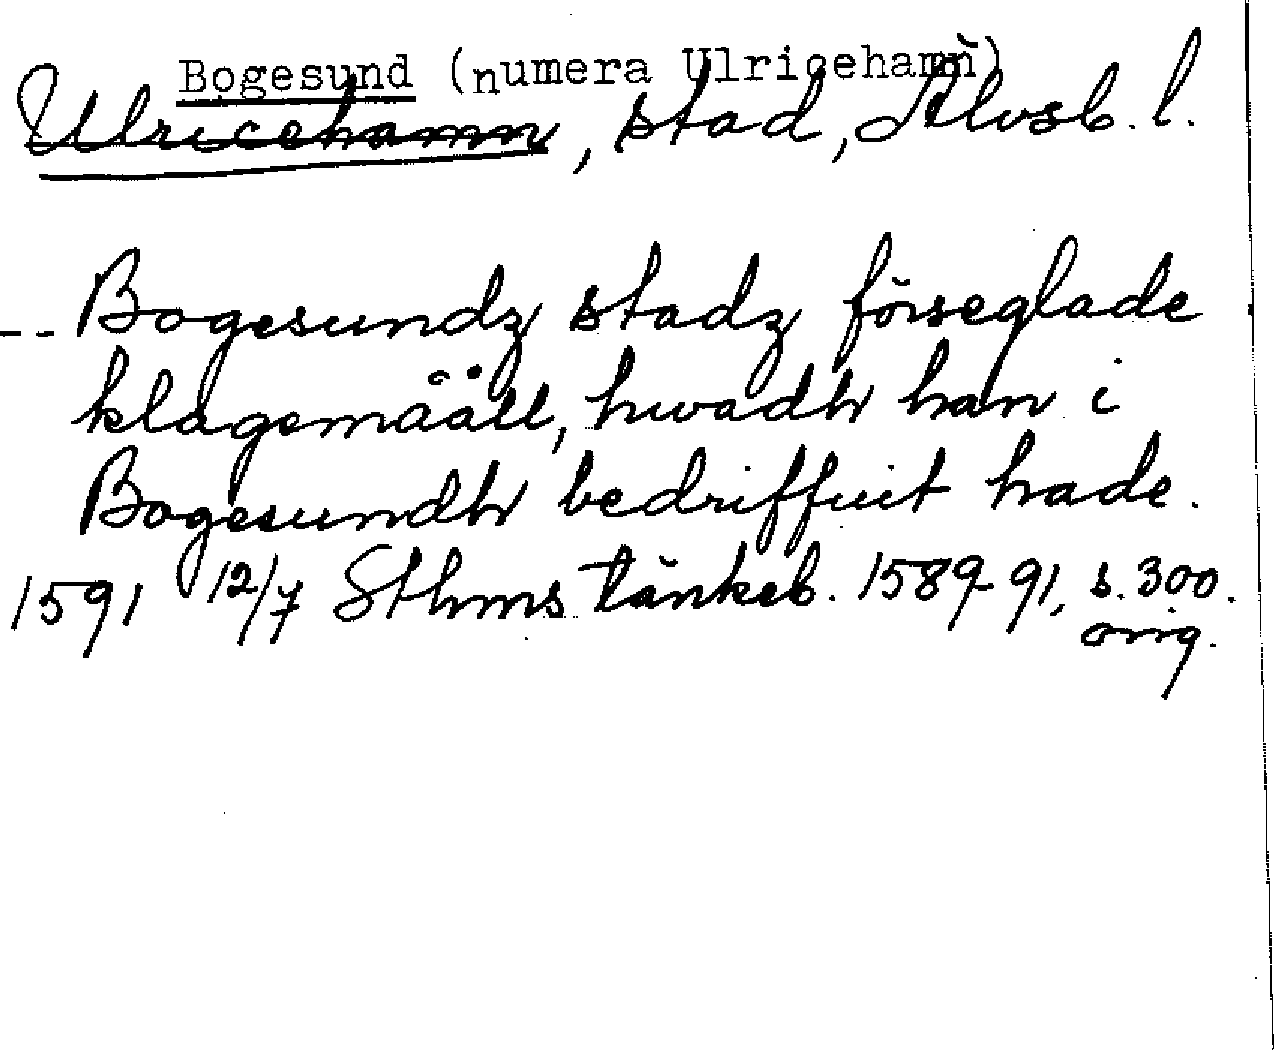 Bogesund (numera Ulricehamn)
Ulricehamn, stad, Älvsb. l.
-- Bogesundz stadz förseglade
klagemååll, hwadh han i
Bogesundh bedriffuit hade.
1591 12/7 Sthms tänkeb. 1589-91, s. 300.
orig.